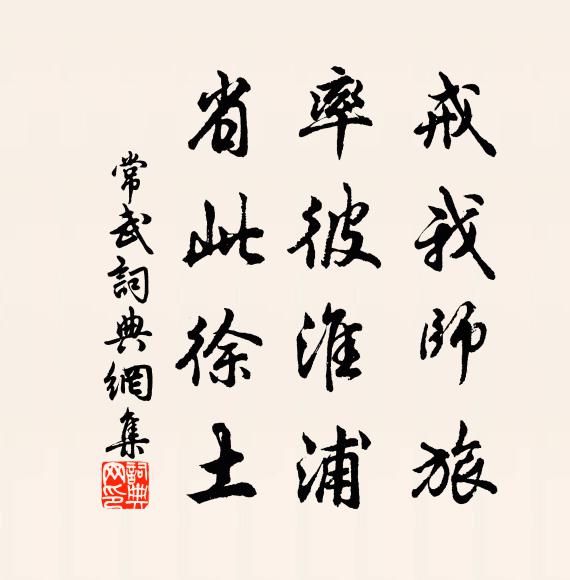 戒我師旅
率彼淮浦
省此徐土
常武詞典網集
詞典
网印